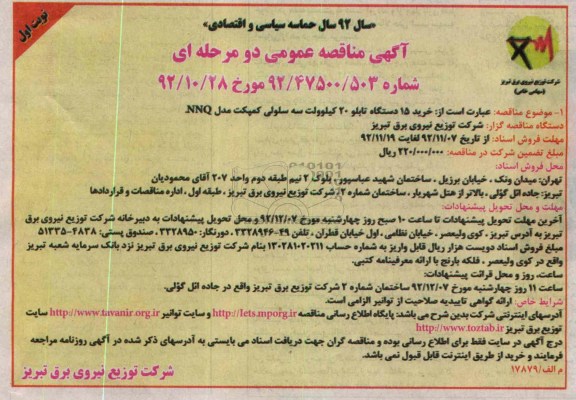 نوبت اول
«سال ۹۲ سال حماسه سیاسی و اقتصادی»
آگهی مناقصه عمومی دو مرحله ای
شماره ۹۲/۴۷۵۰۰/۵۰۳ مورخ ۹۲/۱۰/۲۸
شرکت توزیع نیروی برق تبریز
(سهامی خاص)
۱- موضوع مناقصه: عبارت است از: خرید ۱۵ دستگاه تابلو ۲۰ کیلوولت سه سلولی کمپکت مدل NNQ.
دستگاه مناقصه گزار: شرکت توزیع نیروی برق تبریز
مهلت فروش اسناد: از تاریخ ۹۲/۱۱/۰۷ لغایت ۹۲/۱۱/۱۹
مبلغ تضمین شرکت در مناقصه: ۳۲۰/۰۰۰/۰۰۰ ریال
محل فروش اسناد:
تهران: میدان ونک، خیابان برزیل، ساختمان شهید عباسپور، بلوک ۲ نیم طبقه دوم واحد ۲۰۷ آقای محمودیان
تبریز: جاده ائل گؤلی، بالاتر از هتل شهریار، ساختمان شماره ۲ شرکت توزیع نیروی برق تبریز، طبقه اول، اداره مناقصات و قراردادها
مهلت و محل تحویل پیشنهادات:
آخرین مهلت تحویل پیشنهادات تا ساعت ۱۰ صبح روز چهارشنبه مورخ ۹۲/۱۲/۰۷ و محل تحویل پیشنهادات به دبیرخانه شرکت توزیع نیروی برق
تبریز به آدرس تبریز، کوی ولیعصر، خیابان نظامی، اول خیابان قطران، تلفن ۴۹-۳۳۲۸۹۴۶، دورنگار: ۳۳۲۸۹۵۰، صندوق پستی: ۴۸۳۸-۵۱۳۳۵
مبلغ فروش اسناد دویست هزار ریال قابل واریز به شماره حساب ۱۳۰۲۸۱۰۲۰۲۱۱ بنام شرکت توزیع نیروی برق تبریز نزد بانک سرمایه شعبه تبریز
واقع در کوی ولیعصر، فلکه بارنج با ارائه معرفینامه کتبی.
ساعت، روز و محل قرائت پیشنهادات:
ساعت ۱۱ روز چهارشنبه مورخ ۹۲/۱۲/۰۷ ساختمان شماره ۲ شرکت توزیع برق تبریز واقع در جاده ائل گؤلی.
شرایط خاص: ارائه گواهی تاییدیه صلاحیت از توانیر الزامی است.
آدرسهای اینترنتی شرکت بدین شرح می باشد: پایگاه اطلاع رسانی مناقصه http://iets.mporg.ir و سایت توانیر http://www.tavanir.org.ir سایت
توزیع برق تبریز http://www.toztab.ir
درج آگهی در سایت فقط برای اطلاع رسانی بوده و مناقصه گران جهت دریافت اسناد می بایستی به آدرسهای ذکر شده در آگهی روزنامه مراجعه
فرمایند و خرید از طریق اینترنت قابل قبول نمی باشد.
م الف/۱۷۸۷۹
شرکت توزیع نیروی برق تبریز